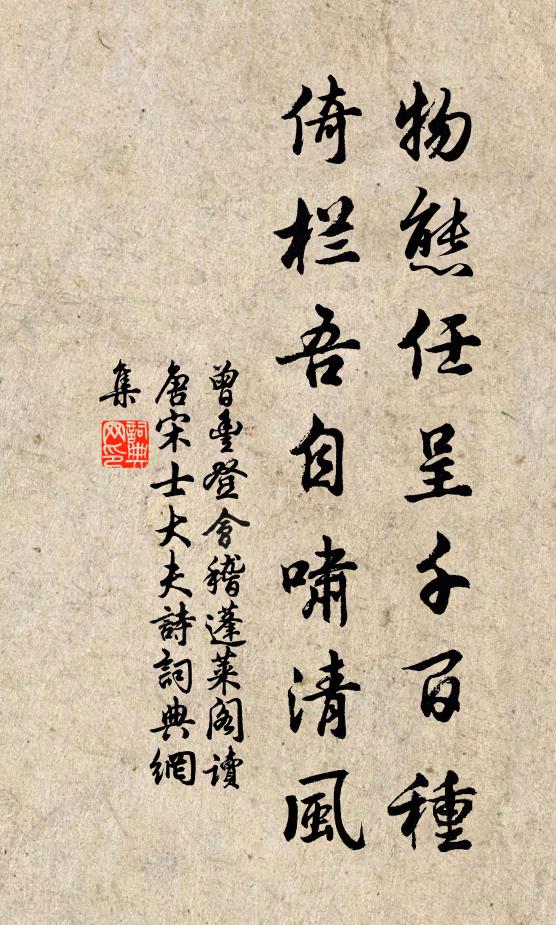 物態任呈千百種
倚栏吾自嘯清風
曾豐登會稽蓬萊閣讀
唐宋士大夫詩詞典網
集
詞典
网印